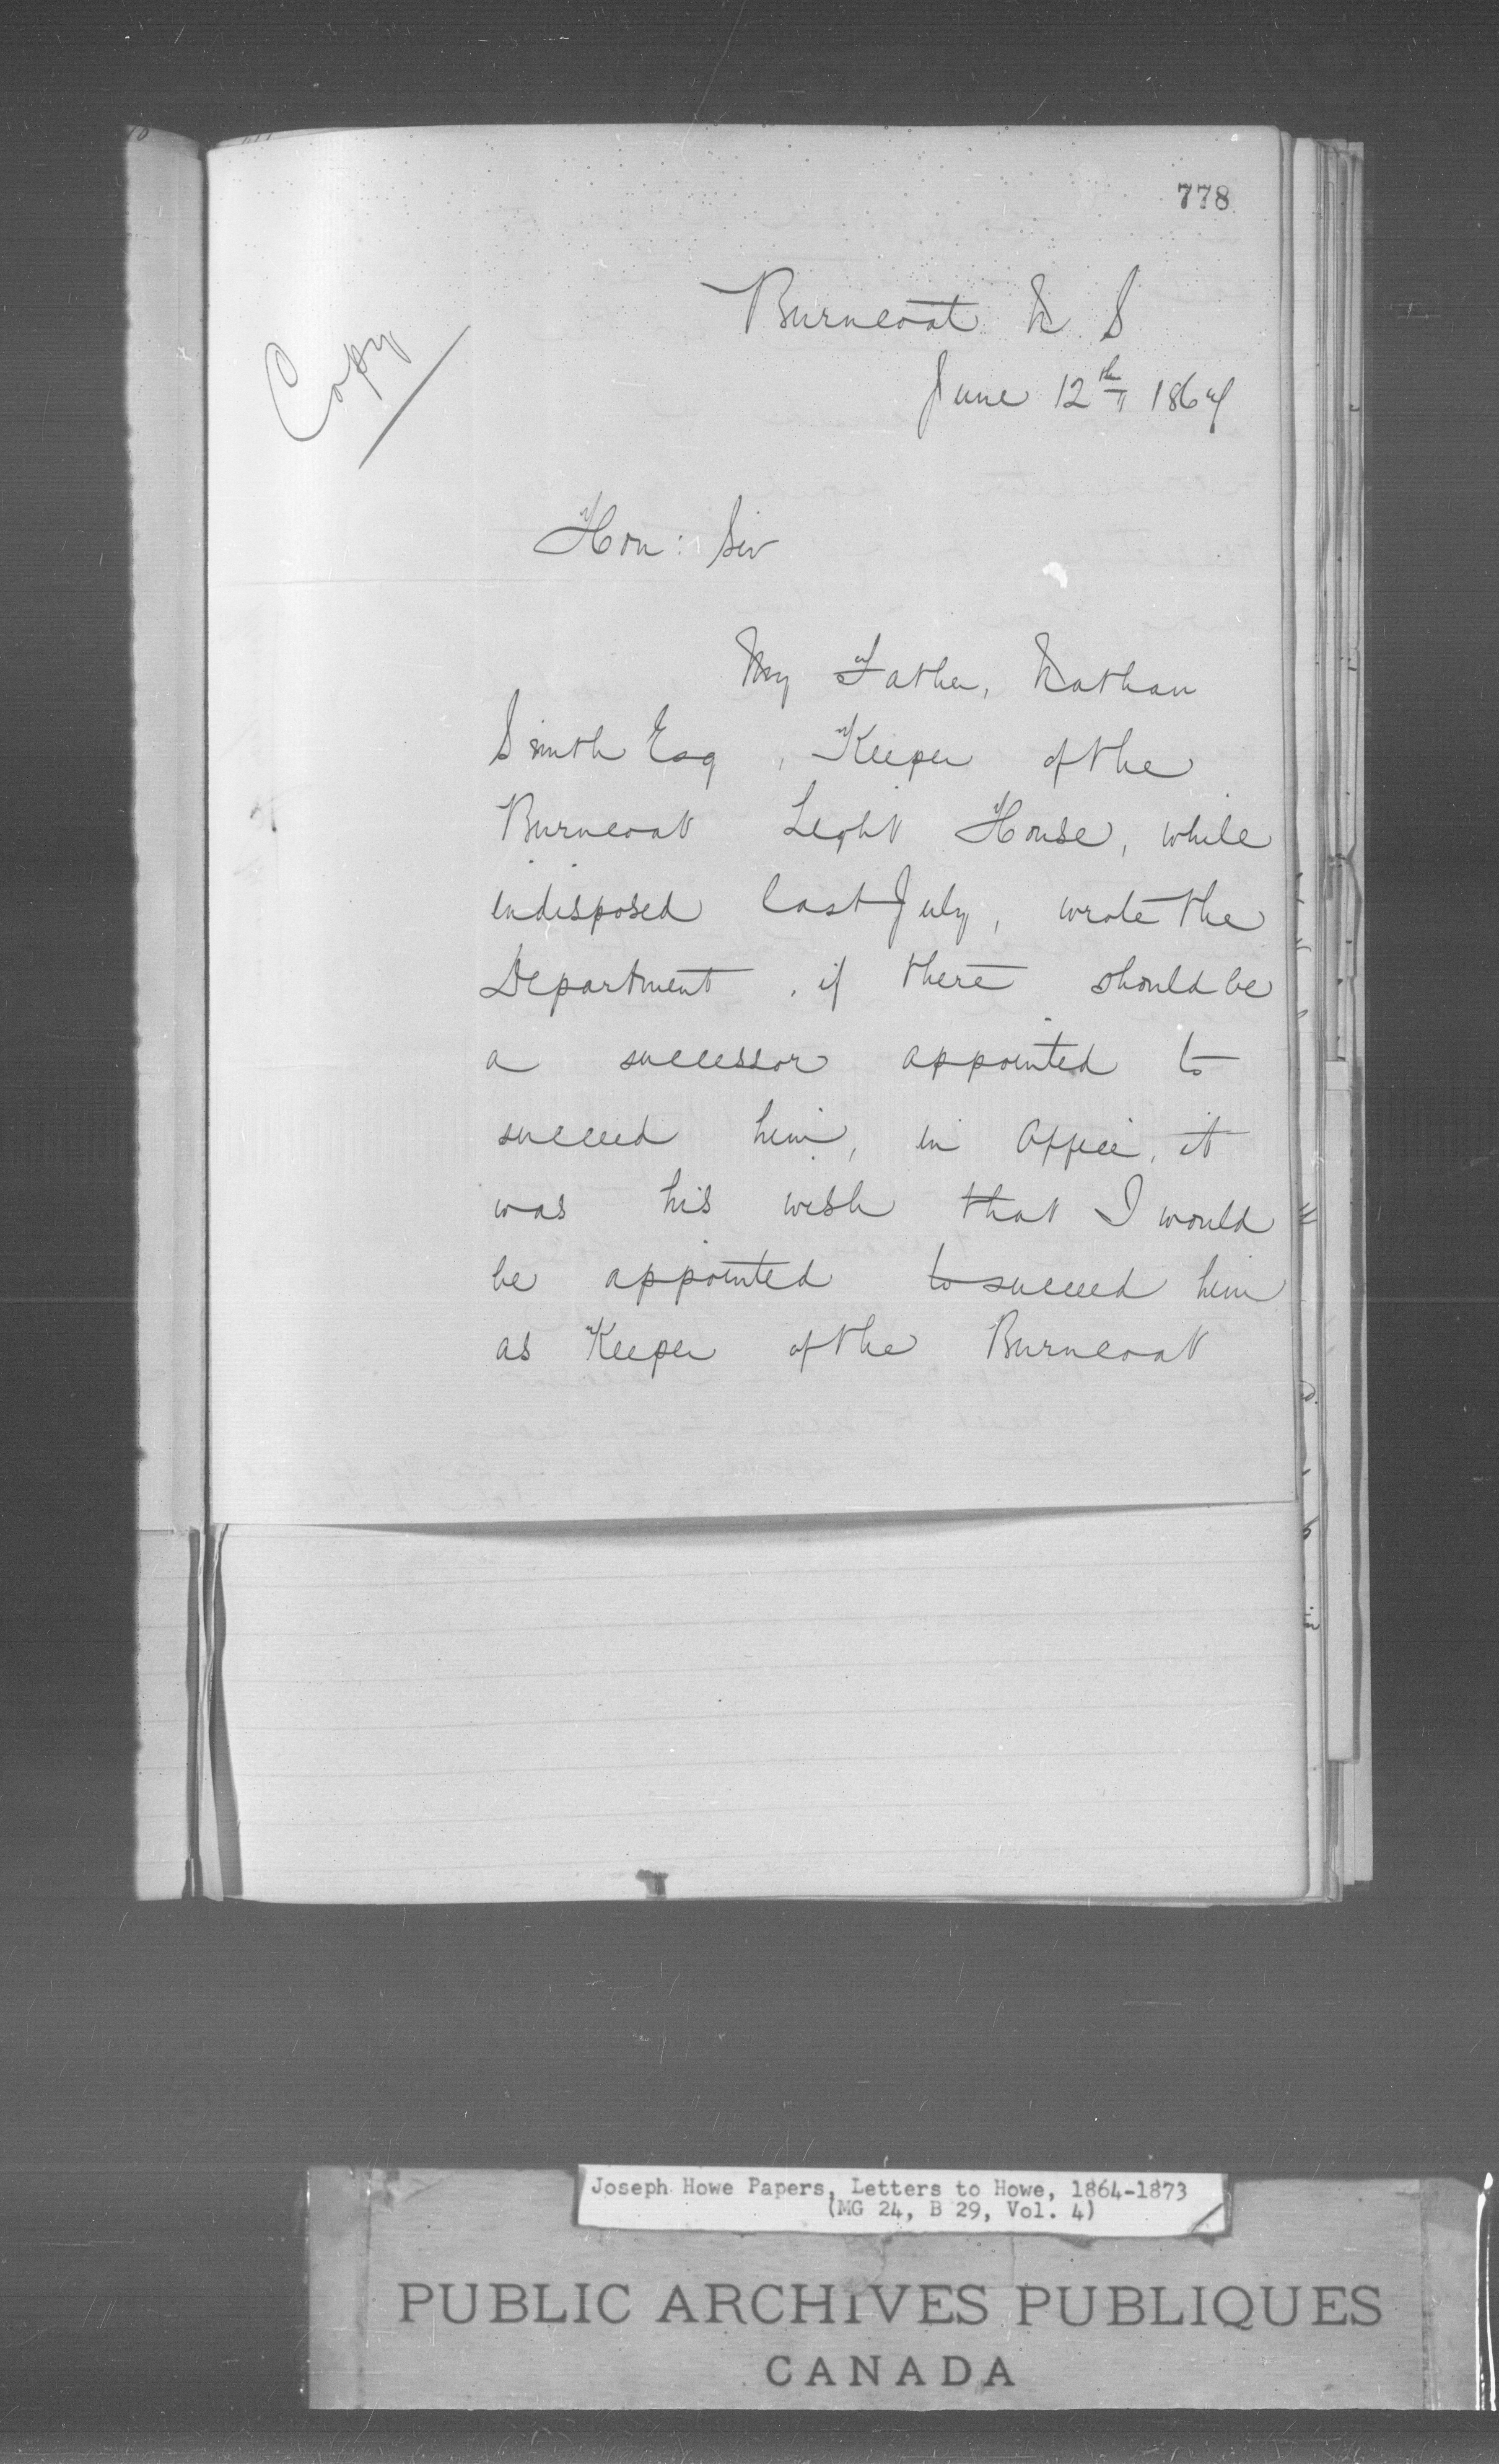 778
Copy
Burncoat N S
June 12th 1869
Hon: Sir
My Father, Nathan
Smith Esq, Keeper of the
Burncoat Light House, while
indisposed last July, wrote the
Department, if there should be
a successor appointed to
succeed him, in Office, it
was his wish that I would
be appointed to succeed him
as Keeper of the Burncoat
Joseph Howe Papers, Letters to Howe, 1864-1873
(MG 24, B 29, Vol. 4)
PUBLIC ARCHIVES PUBLIQUES
CANADA